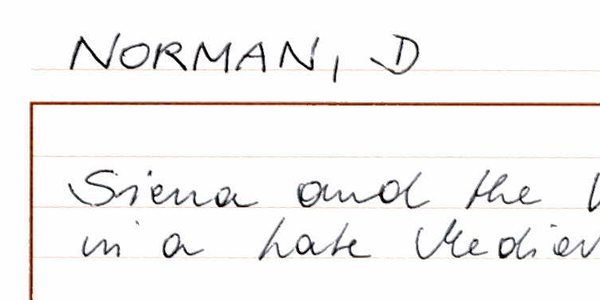 NORMAN, D
Siena and the
in a Late Mediev